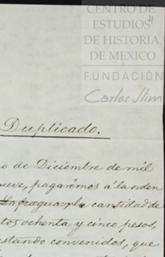 CENTRO DE
ESTUDIOS
DE HISTORIA
DE MEXICO
FUNDACIÓN
Carlos Slim
Duplicado.
o de Diciembre de mil
ueve, pagarémos á la orden
cantidad de
tos ochenta y cinco pesos,
stando convenidos, que